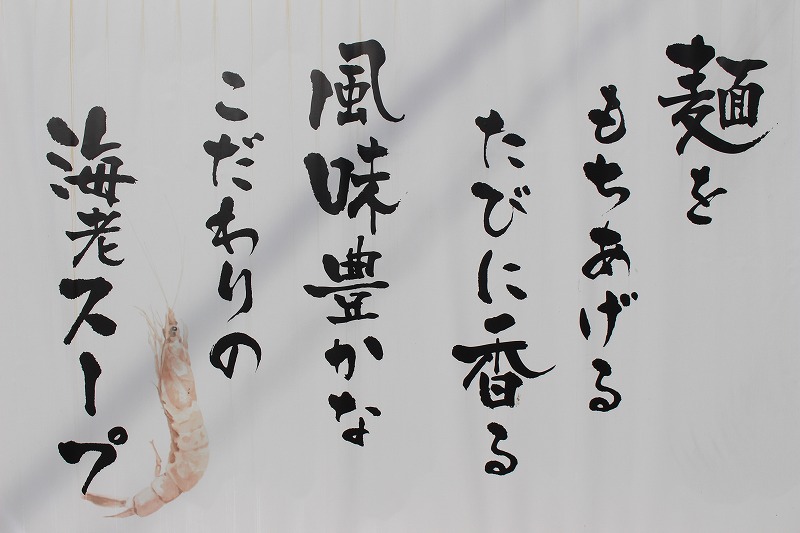 麺を
もちあげる
たびに香る
風味豊かな
こだわりの
海老スープ